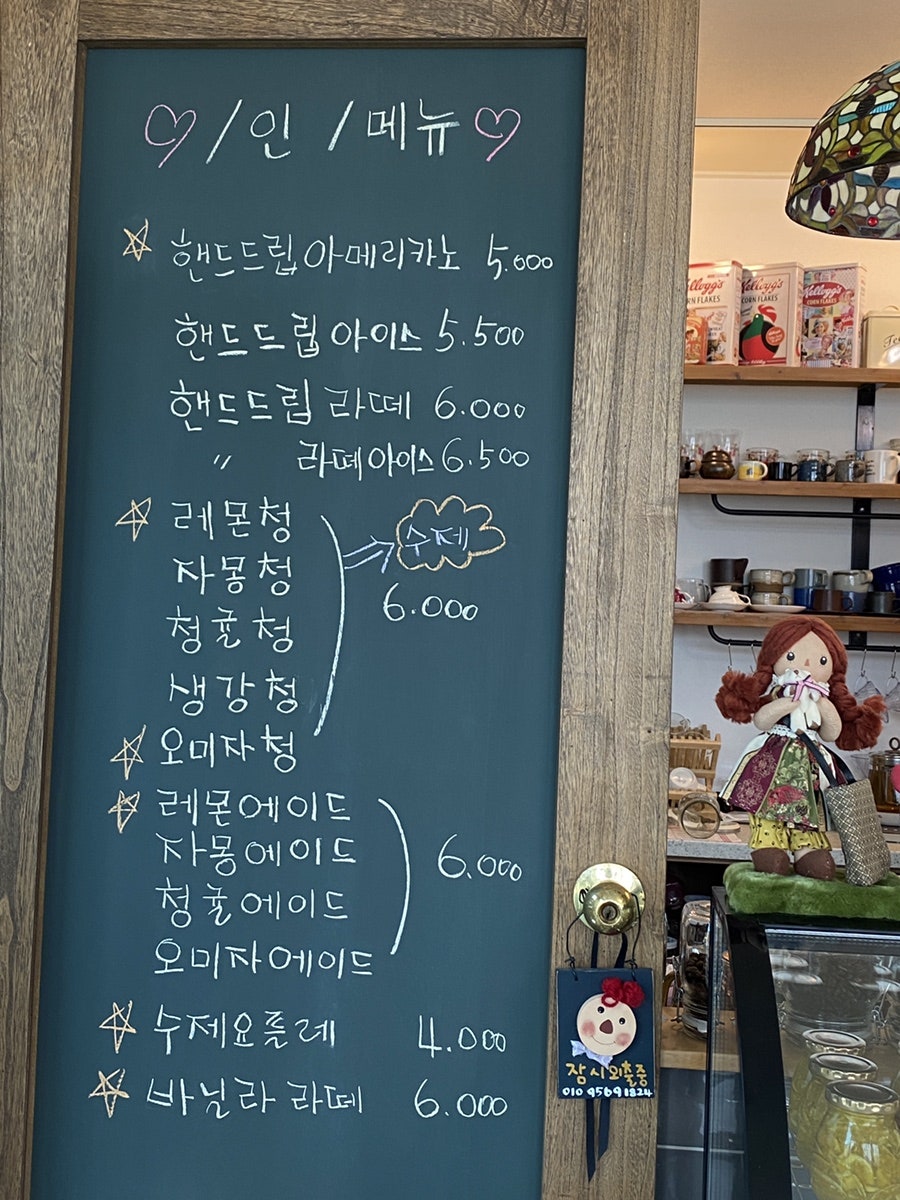 ♡/인/메뉴♡
☆ 핸드드립아메리카노 5.000
핸드드립아이스 5.500
핸드드립 라떼 6.000
〃 라떼아이스 6.500
☆ 레몬청
수제
자몽청
6.000
청귤청
생강청
☆ 오미자청
☆ 레몬에이드
자몽에이드
6.000
청귤에이드
오미자에이드
☆ 수제요플레 4.000
☆ 바닐라 라떼 6.000
Kellogg's
CORN FLAKES
Kellogg's
CORN FLAKES
Kellogg's
CORN FLAKES
잠시외출중
010 9569 1824